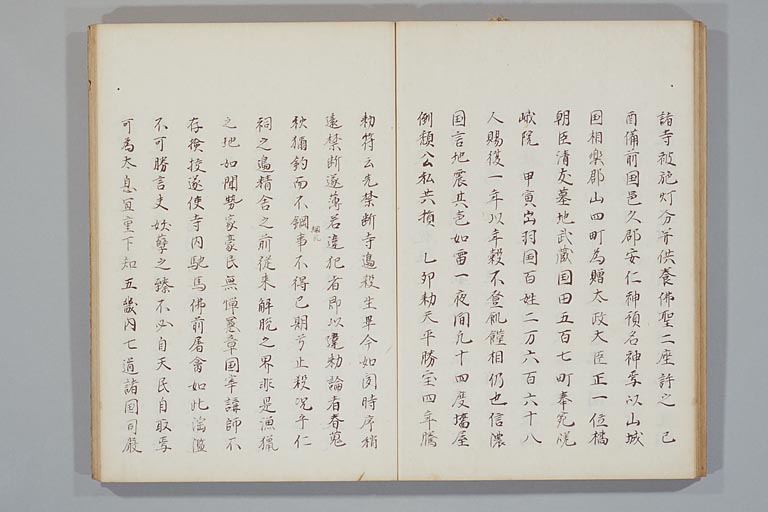 諸寺被施灯分并供養佛聖二座許之　己
酉備前国邑久郡安仁神預名神焉以山城
国相楽郡山四町為贈太政大臣正一位橘
朝臣清友墓地武蔵国田五百七町奉充嵯
峨院　甲寅出羽国百姓二万六百六十八
人賜復一年以年穀不登飢饉相仍也信濃
国言地震其色如雷一夜間凡十四度墻屋
倒頽公私共損　乙卯勅天平勝宝四年騰
勅符云先禁断寺邊殺生畢今如聞時序稍
遠禁断遂薄若違犯者即以違勅論者春蒐
秋獮釣而不綱事不得已期乎止殺况乎仁
祠之邊精舎之前従来解脱之界非是漁獵
之地如聞勢家豪民無憚憲章国宰講師不
存検授遂使寺内馳馬佛前屠禽如此濫
不可勝言夫妖孽之臻不必自天民自取焉
可為太息宜重下知五畿内七道諸国司厳